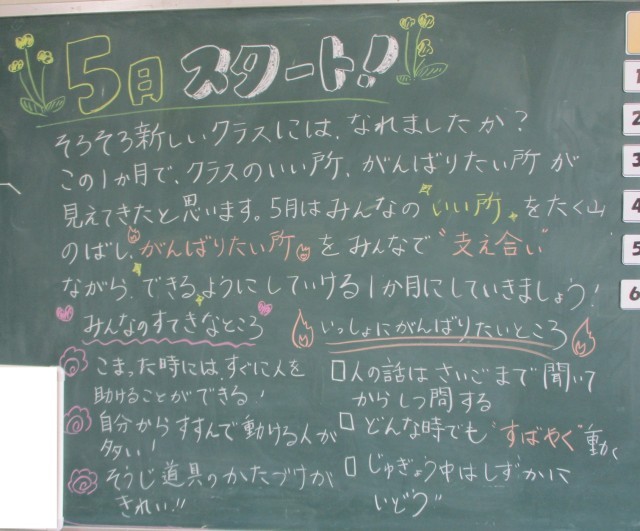 5月 スタート!
そろそろ新しいクラスには、なれましたか?
この1か月で、クラスのいい所、がんばりたい所が
見えてきたと思います。5月はみんなの いい所 をたく山
のばし、がんばりたい所 をみんなで"支え合い"
ながら、できるようにしていける1か月にしていきましょう!
みんなのすてきなところ
こまった時には、すぐに人を
助けることができる!
自分からすすんで動ける人が
多い!
そうじ道具のかたづけが
きれい!!
いっしょにがんばりたいところ
□人の話はさいごまで聞いて
からしつ問する
□どんな時でも"すばやく"動く
□じゅぎょう中はしずかに
いどう"
1
2
3
4
5
6